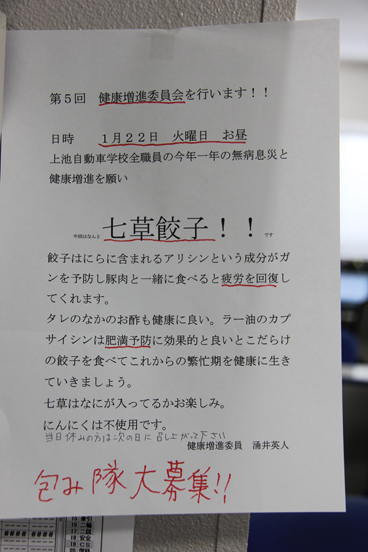 第５回　健康増進委員会を行います！！
日時　１月２２日　火曜日　お昼
上池自動車学校全職員の今年一年の無病息災と
健康増進を願い
今回はなんと 七草餃子！！ です
餃子はにらに含まれるアリシンという成分がガ
ンを予防し豚肉と一緒に食べると疲労を回復し
てくれます。
タレのなかのお酢も健康に良い。ラー油のカプ
サイシンは肥満予防に効果的と良いとこだらけ
の餃子を食べてこれからの繁忙期を健康に生き
ていきましょう。
七草はなにが入ってるかお楽しみ。
にんにくは不使用です。
当日休みの方は次の日に召し上がって下さい
健康増進委員　涌井英人
包み隊大募集!!